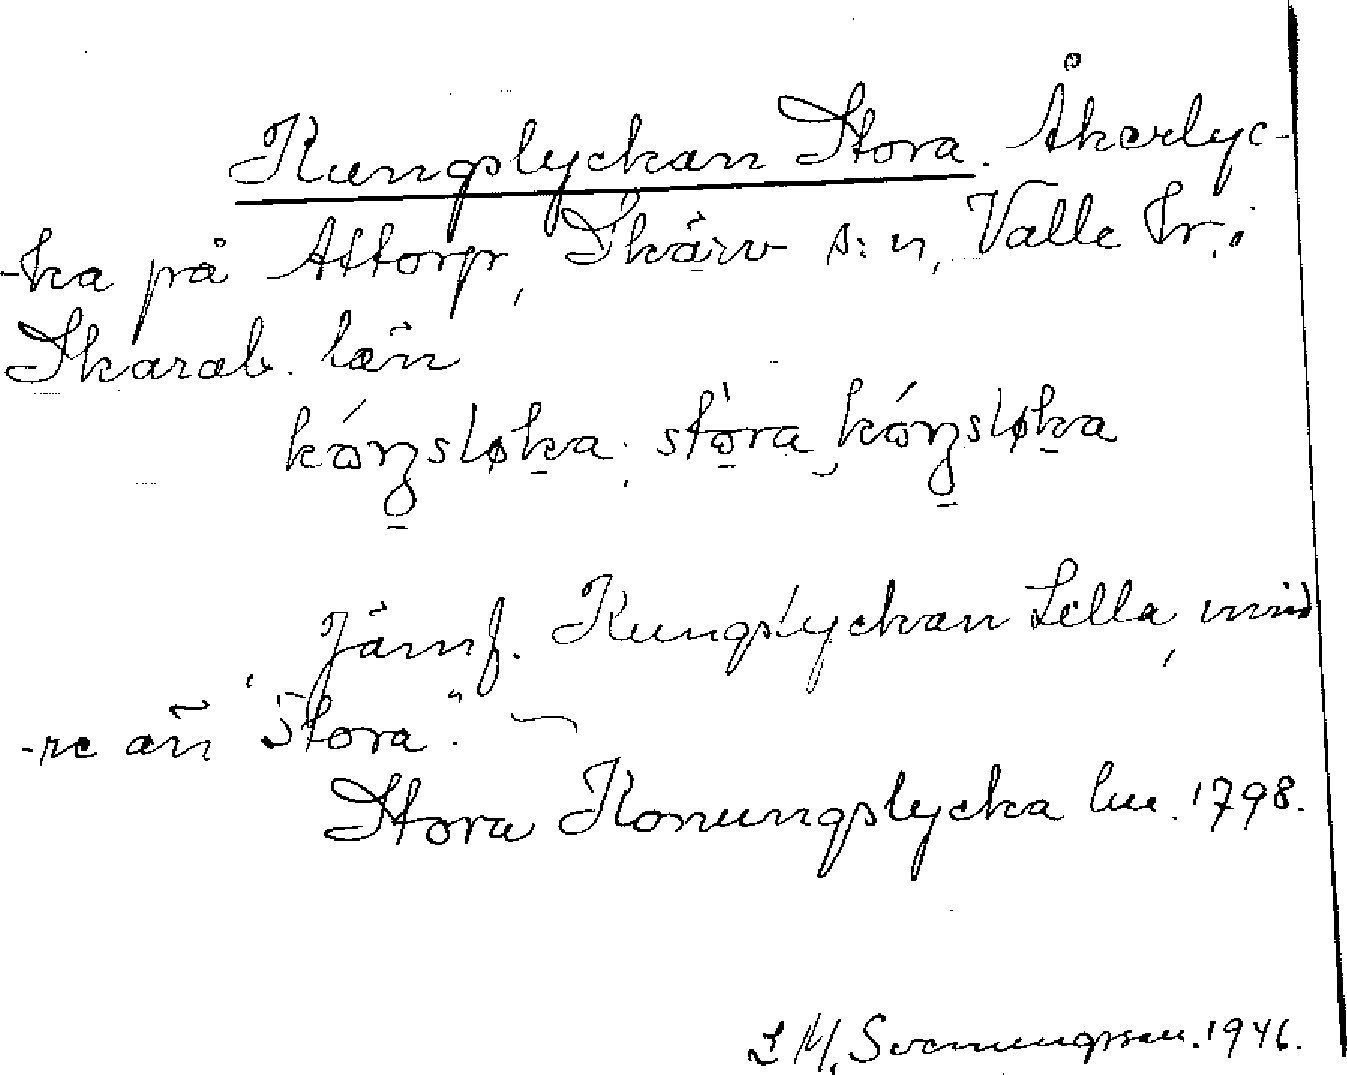 Kungslyckan Stora. Åkerlyc-
-ka på Attorp, Skärv s:n, Valle hr. i
Skarab. län
kóŋsløka; stòra kóŋsløka
Jämf. Kungslyckan Lella, mind
-re än "Stora". ~
Stora Konungslycka lm. 1798.
L M, Svenungsson. 1946.